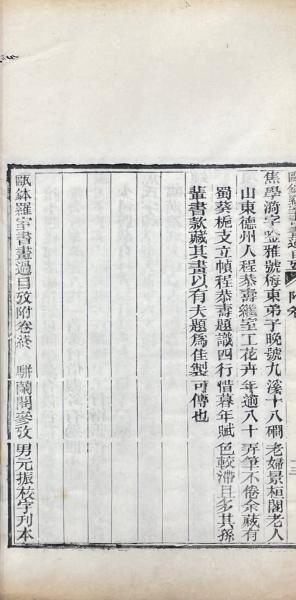 甌鉢羅室書畫過目攷 附卷
焦學漪字竺雅號梅東弟子晚號九溪十八磵老婦景桓閣老人
山東德州人程恭壽繼室工花卉年逾八十弄筆不倦余藏有
蜀葵梔支立幀程恭壽題識四行惜暮年賦色較滯且多其孫
輩書款藏其畫以有夫題爲佳製可傳也
甌鉢羅室書畫過目攷附卷終 駢蘭閣參攷 男元振校字刊本